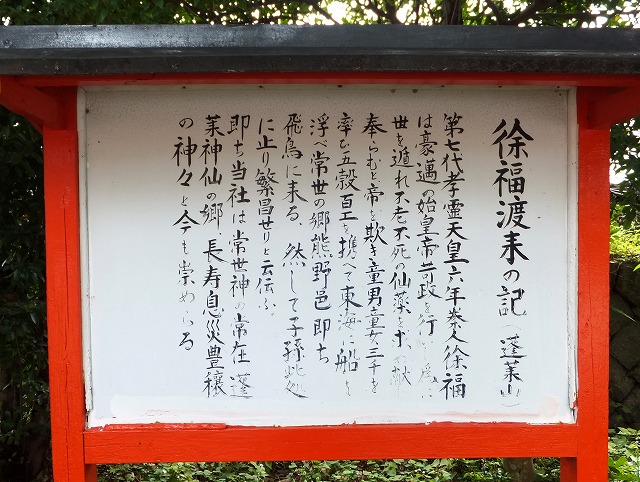 徐福渡来の記(蓬莱山)
第七代孝霊天皇六年秦人徐福
は豪邁の始皇帝苛政を行い為に
世を遁れ不老不死の仙薬を求め献
奉らむと帝を欺き童男童女三千を
率ひ五穀百工を携へて東海に船を
浮べ常世の郷熊野邑即ち
飛鳥に来る、然して子孫此処
に止り繁昌せりと云伝ふ。
即ち当社は常世神の常在蓬
莱神仙の郷、長寿息災豊穣
の神々と今も崇めらる